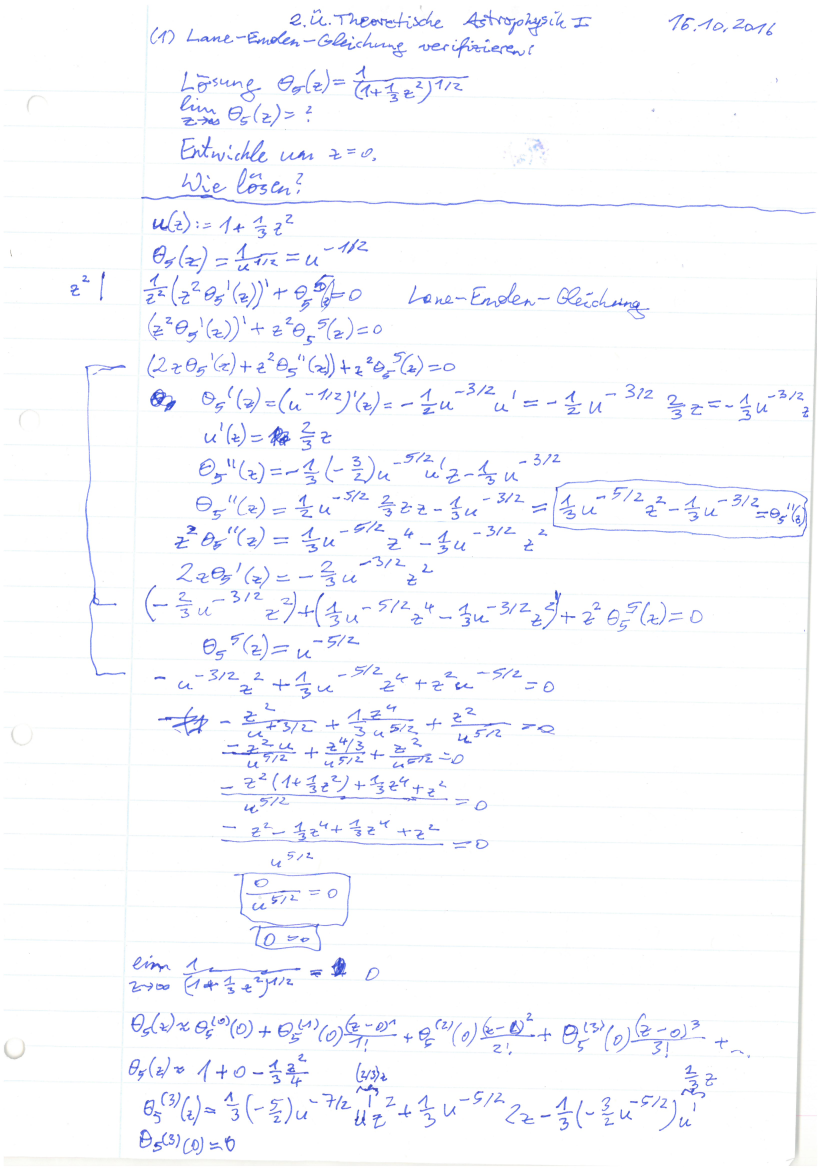 2. Ü. Theoretische Astrophysik I 16.10.2016
(1) Lane-Emden-Gleichung verifizieren:
Lösung θ₅(z) = 1/(1+⅓z²)^{1/2}
lim_{z→∞} θ₅(z) = ?
Entwickle um z=0.
Wie lösen?
u(z) := 1 + ⅓z²
θ₅(z) = 1/u^{1/2} = u^{-1/2}
z² | 1/z² (z²θ₅'(z))' + θ₅⁵(z) = 0 Lane-Emden-Gleichung
(z²θ₅'(z))' + z²θ₅⁵(z) = 0
(2zθ₅'(z) + z²θ₅''(z)) + z²θ₅⁵(z) = 0
θ₅'(z) = (u^{-1/2})'(z) = -½u^{-3/2}u' = -½u^{-3/2} ⅔z = -⅓u^{-3/2}z
u'(z) = ⅔z
θ₅''(z) = -⅓(-3/2)u^{-5/2}u'z - ⅓u^{-3/2}
θ₅''(z) = ½u^{-5/2} ⅔zz - ⅓u^{-3/2} = ⅓u^{-5/2}z² - ⅓u^{-3/2} = θ₅''(z)
z²θ₅''(z) = ⅓u^{-5/2}z⁴ - ⅓u^{-3/2}z²
2zθ₅'(z) = -⅔u^{-3/2}z²
(-⅔u^{-3/2}z²) + (⅓u^{-5/2}z⁴ - ⅓u^{-3/2}z²) + z²θ₅⁵(z) = 0
θ₅⁵(z) = u^{-5/2}
-u^{-3/2}z² + ⅓u^{-5/2}z⁴ + z²u^{-5/2} = 0
-z²/u^{+3/2} + ⅓ z⁴/u^{5/2} + z²/u^{5/2} = 0
-z²u/u^{5/2} + z⁴/3/u^{5/2} + z²/u^{5/2} = 0
(-z²(1+⅓z²) + ⅓z⁴ + z²)/u^{5/2} = 0
(-z² - ⅓z⁴ + ⅓z⁴ + z²)/u^{5/2} = 0
0/u^{5/2} = 0
0 = 0
lim_{z→∞} 1/(1+⅓z²)^{1/2} = 0
θ₅(z) ≈ θ₅^{(0)}(0) + θ₅^{(1)}(0) (z-0)¹/1! + θ₅^{(2)}(0) (z-0)²/2! + θ₅^{(3)}(0) (z-0)³/3! + ...
θ₅(z) ≈ 1 + 0 - ⅓ z²/4
(2/3)z ⅔z
θ₅^{(3)}(z) = ⅓(-5/2)u^{-7/2}u'z² + ⅓u^{-5/2}2z - ⅓(-3/2 u^{-5/2})u'
θ₅^{(3)}(0) = 0